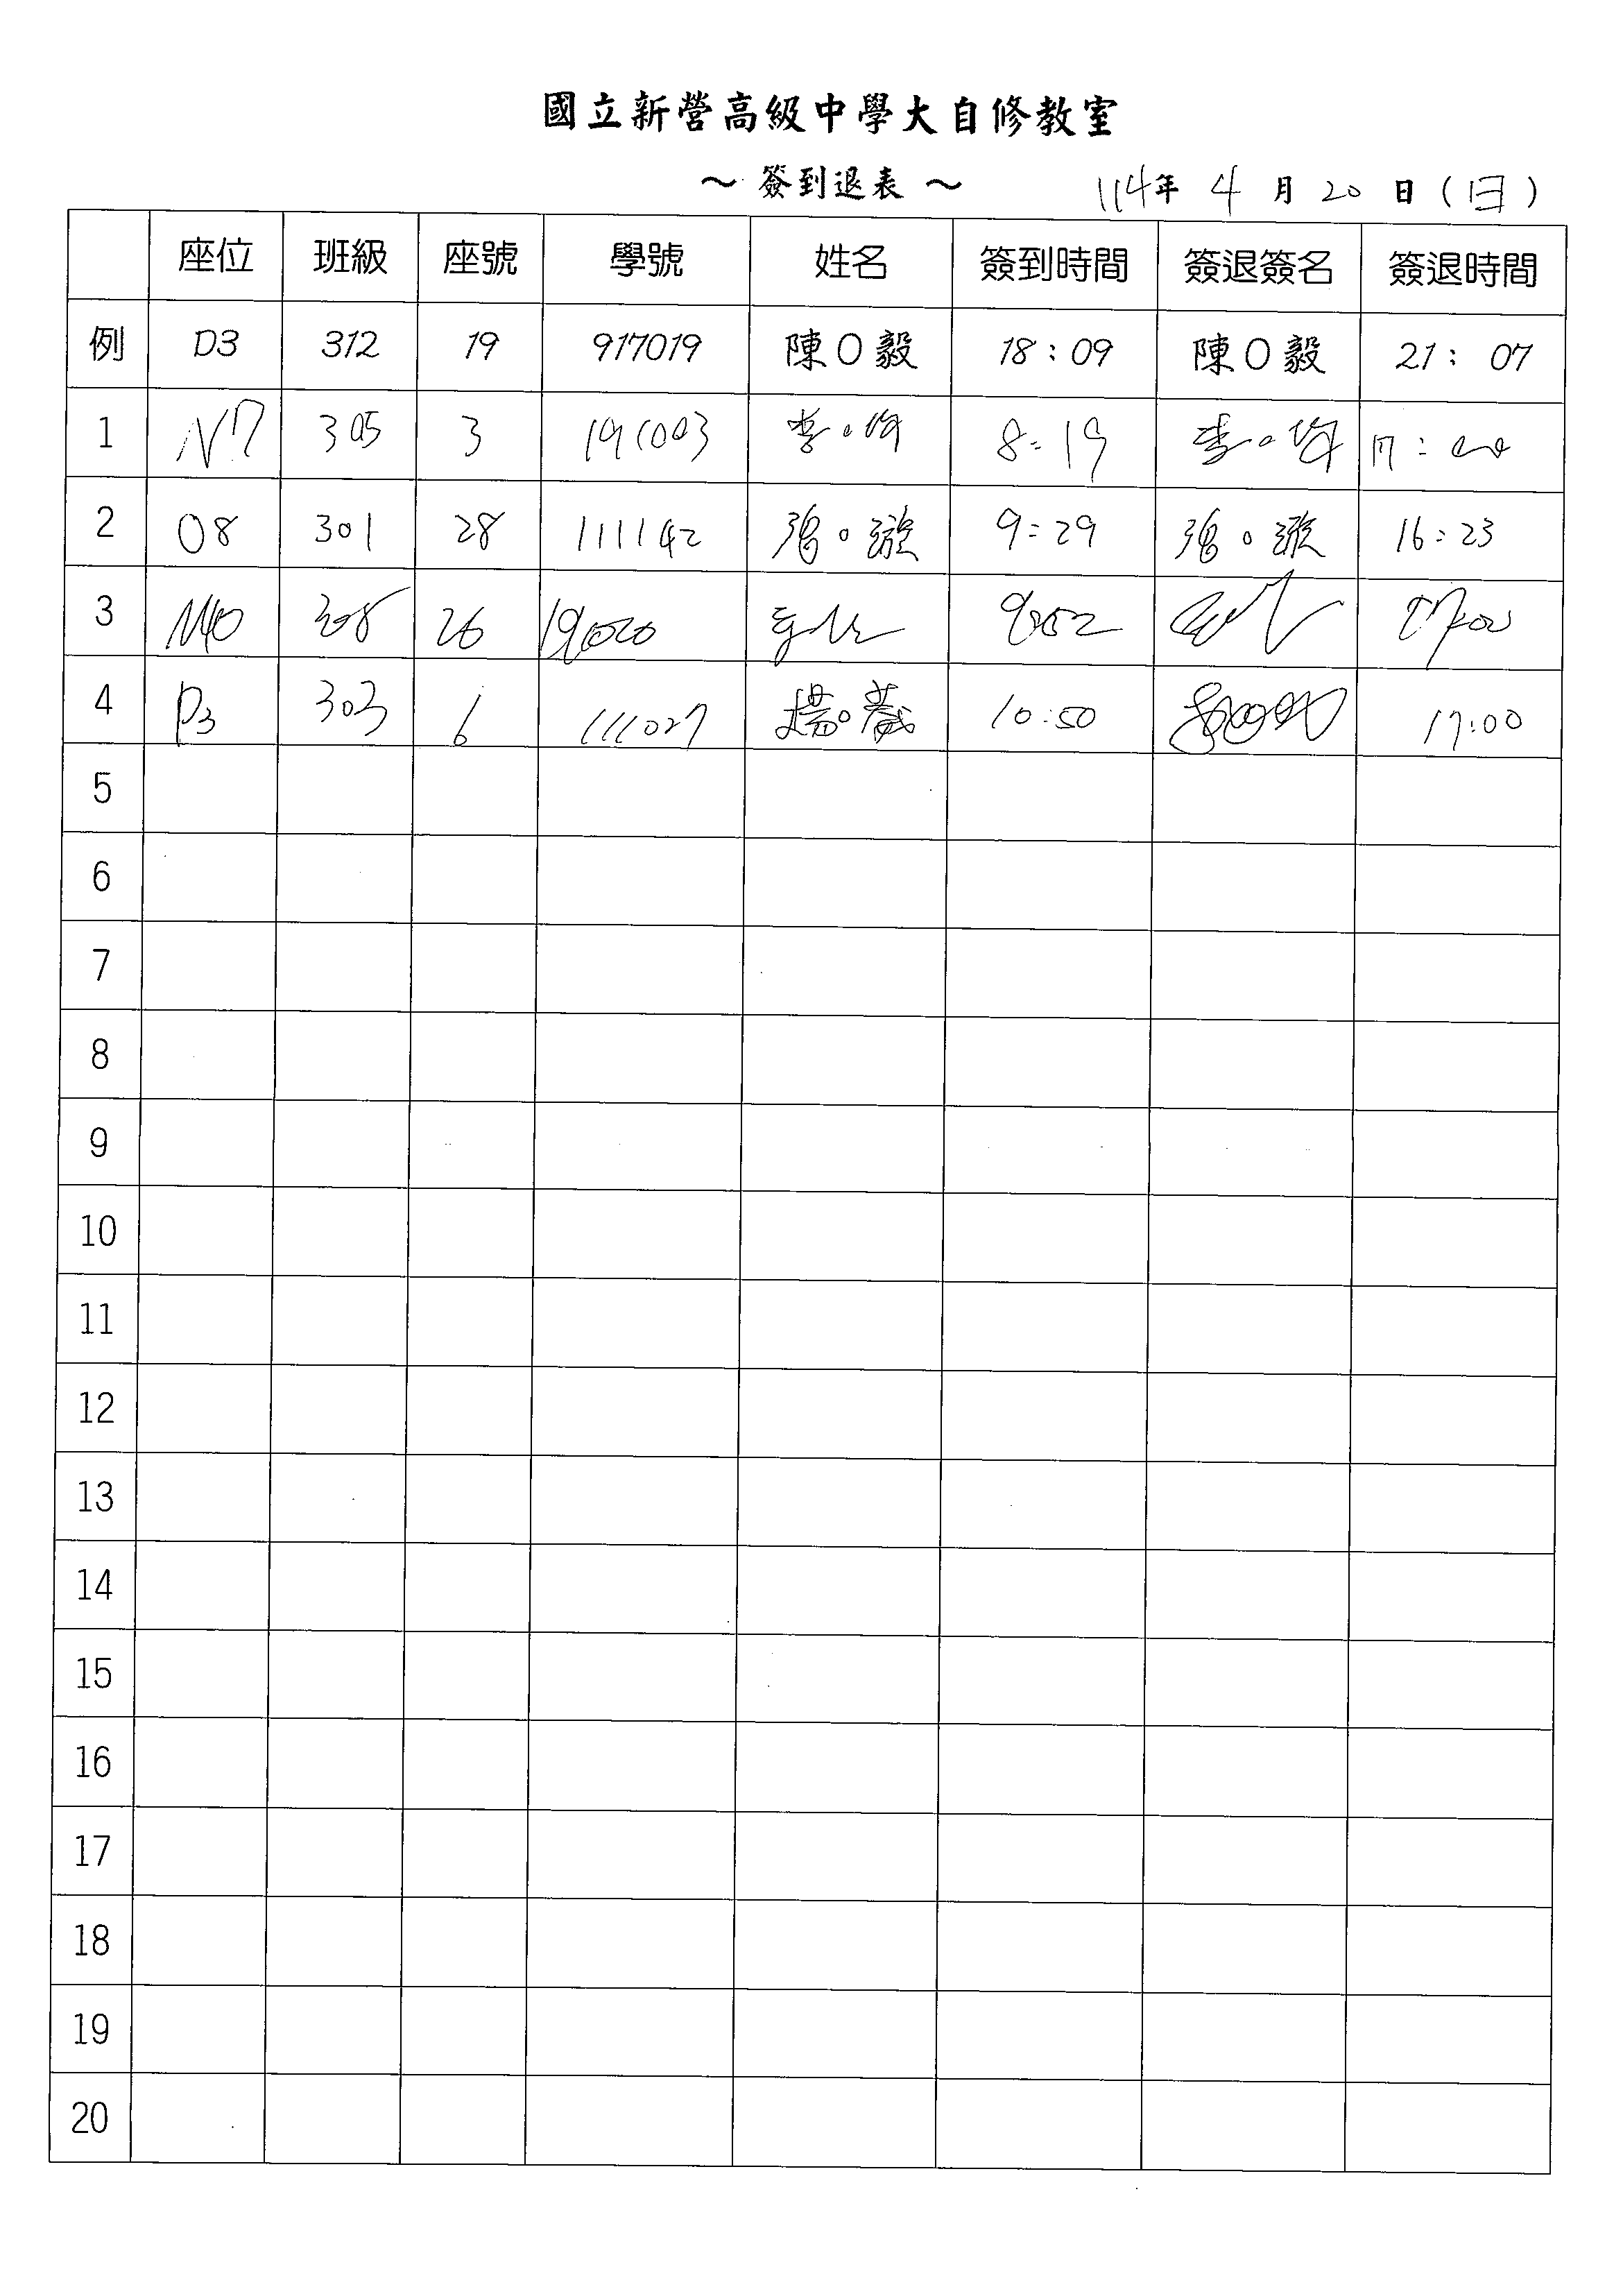 國立新營高級中學大自修教室
～簽到退表～ 114年 4 月 20 日(日)
座位 班級 座號 學號 姓名 簽到時間 簽退簽名 簽退時間
例 D3 312 19 917019 陳O毅 18:09 陳O毅 21:07
1 N17 305 3 191003 李。 8:19 李。 17:00
2 O8 301 28 111142 。漩 9:29 。漩 16:23
3 M40 308 26 17:00
4 P3 303 6 111027 楊。葳 10:50 17:00
5
6
7
8
9
10
11
12
13
14
15
16
17
18
19
20